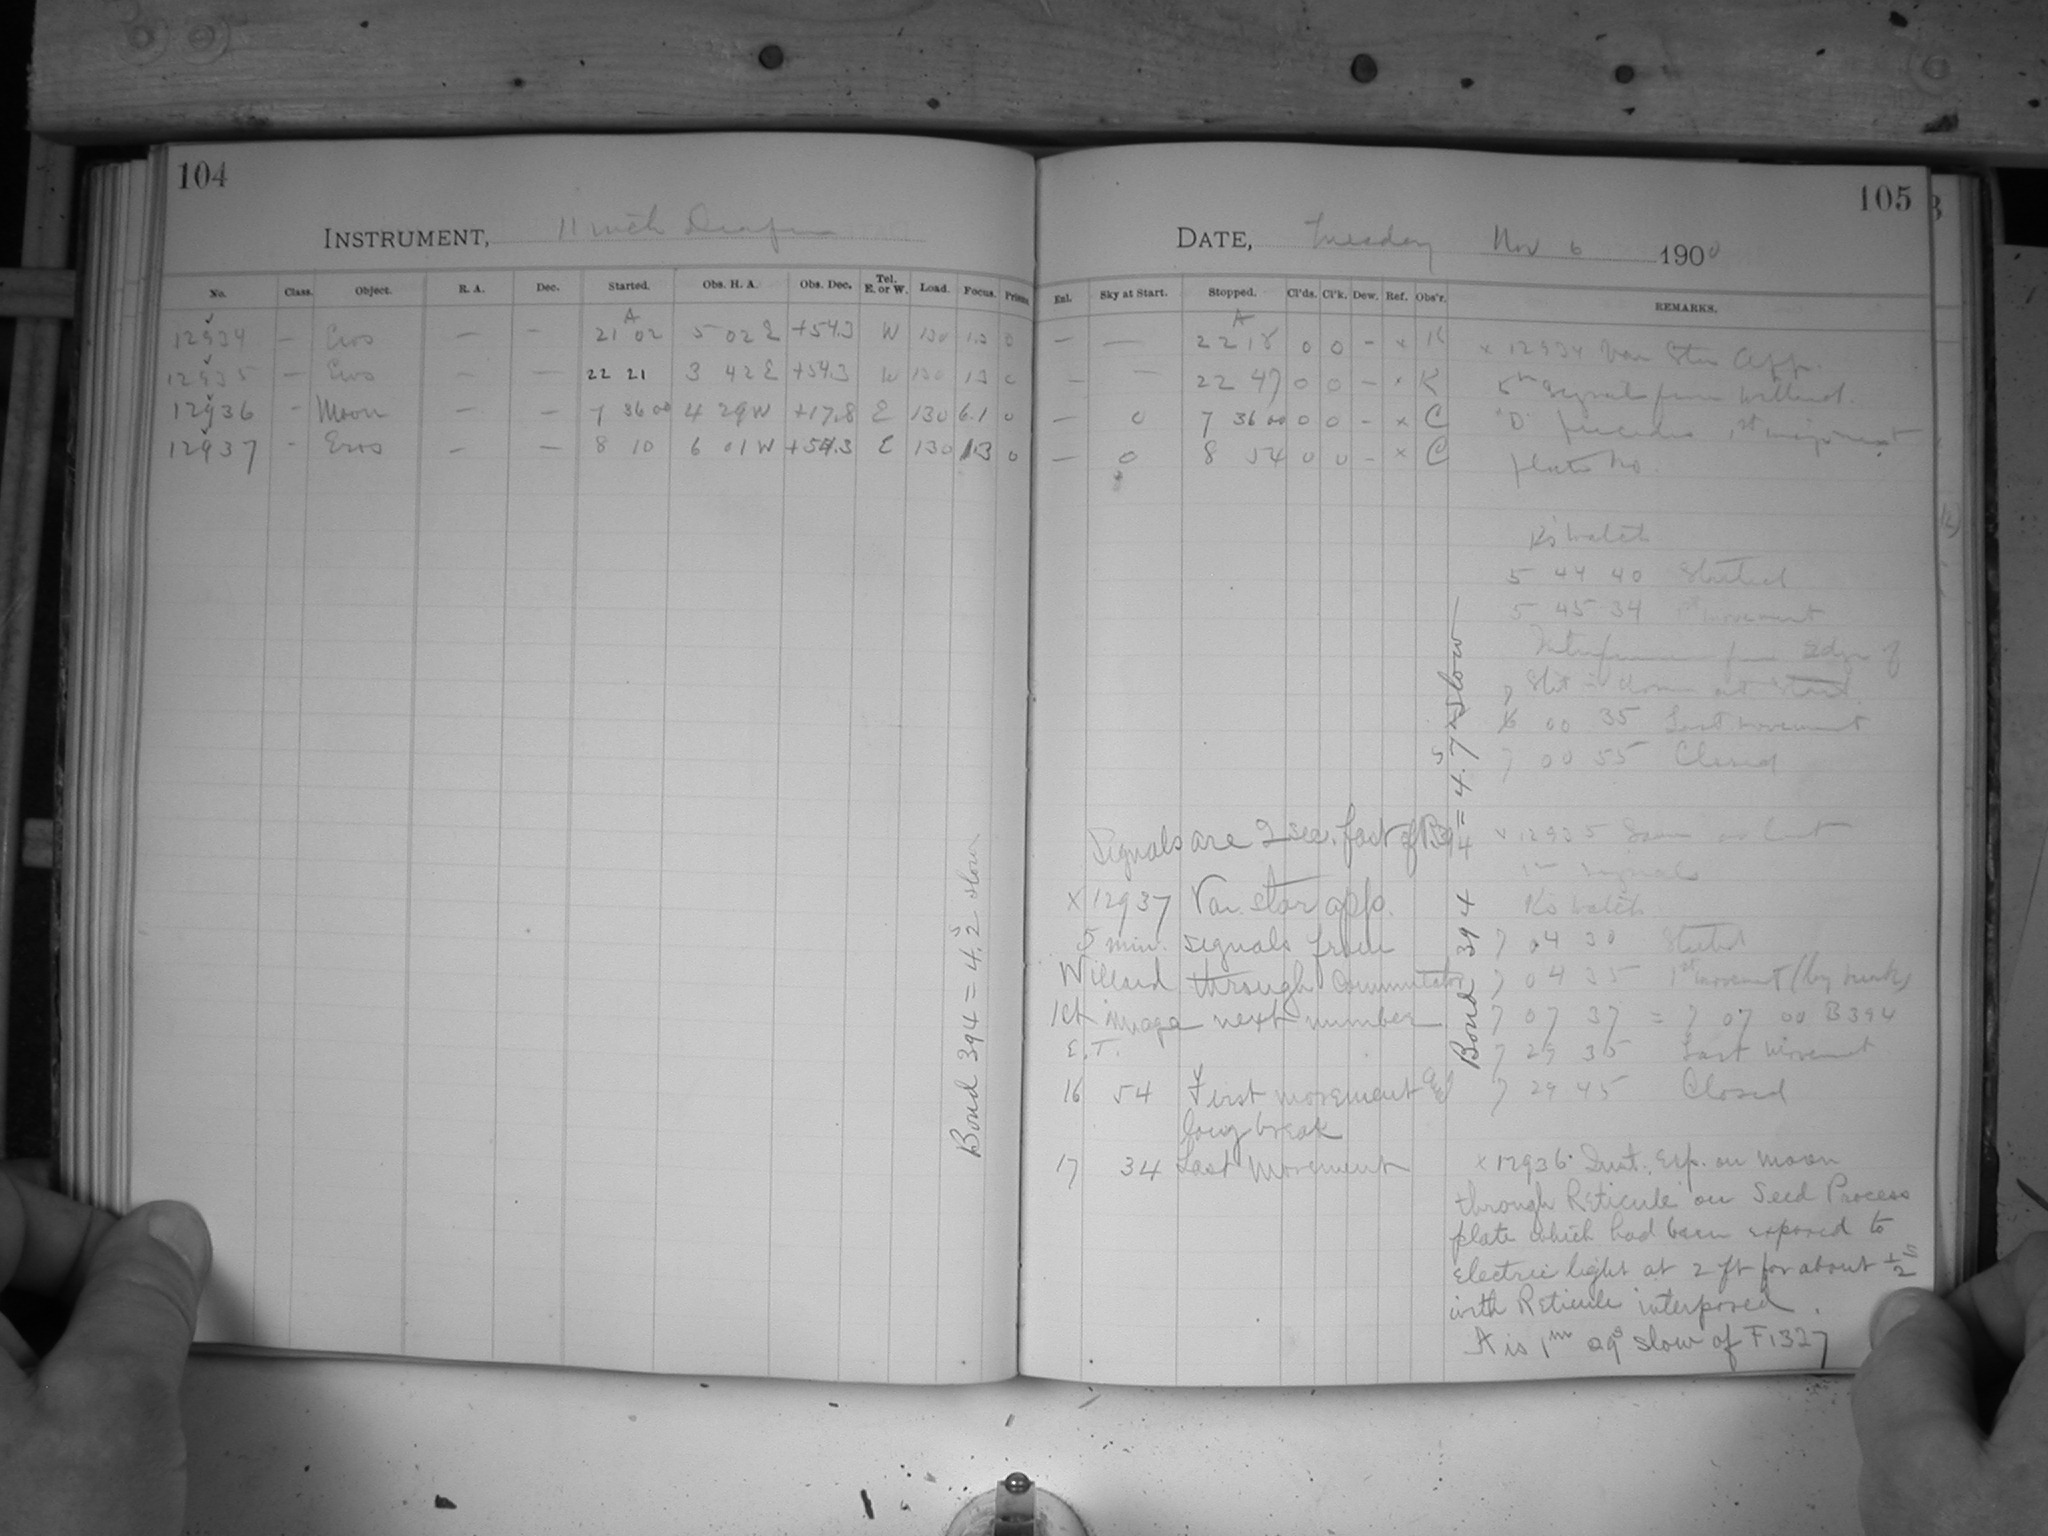 104
INSTRUMENT, 11 inch Draper
No. Class. Object. R. A. Dec. Started. Obs. H. A. Obs. Dec. Tel. E. or W. Load. Focus. Prisms.
A
12934 — Eros — — 21 02 5 02 E +54.3 W 130 1.3 0
12935 — Eros — — 22 21 3 42 E +54.3 W 130 1.3 0
12936 - Moon — — 7 36 00 4 29 W +17.8 E 130 6.1 0
12937 - Eros — — 8 10 6 01 W +54.3 E 130 1.3 0
Bond 394 = 4.2s slow
105
DATE, Tuesday Nov 6 1900
Enl. Sky at Start. Stopped. Cl'ds. Cl'k. Dew. Ref. Obs'r. REMARKS.
A
— — 22 18 0 0 - x K
— — 22 47 0 0 - x K
— 0 7 36 00 0 0 - x C
— 0 8 54 0 0 - x C
x 12934 Var Star App.
5m Signal from Willard.
"D" precedes 1st image next
plate No.
K's Watch
5 44 40 Started
5 45 34 1st movement
from Edge of
Slit = down at Start
7 00 35 Last movement
7 00 55 Closed
x 12935 Same as last
signals
K's Watch
7 04 30 Started
7 04 35 1st movement (by hand)
7 07 37 = 7 07 00 B394
7 29 35 Last movement
7 29 45 Closed
x 12936. Inst. Exp. on moon
through Reticule on Seed Process
plate which had been exposed to
Electric light at 2 ft for about 1/2 s
with Reticule interposed.
A is 1m 29s slow of F1327
Bond 394 = 4.7s slow
Signals are 2 sec. fast of B394
x 12937 Var. star app.
5 min. signals from
Willard through Commutator
1st image next number
E.T.
16 54 First movement
long break
17 34 Last Movement